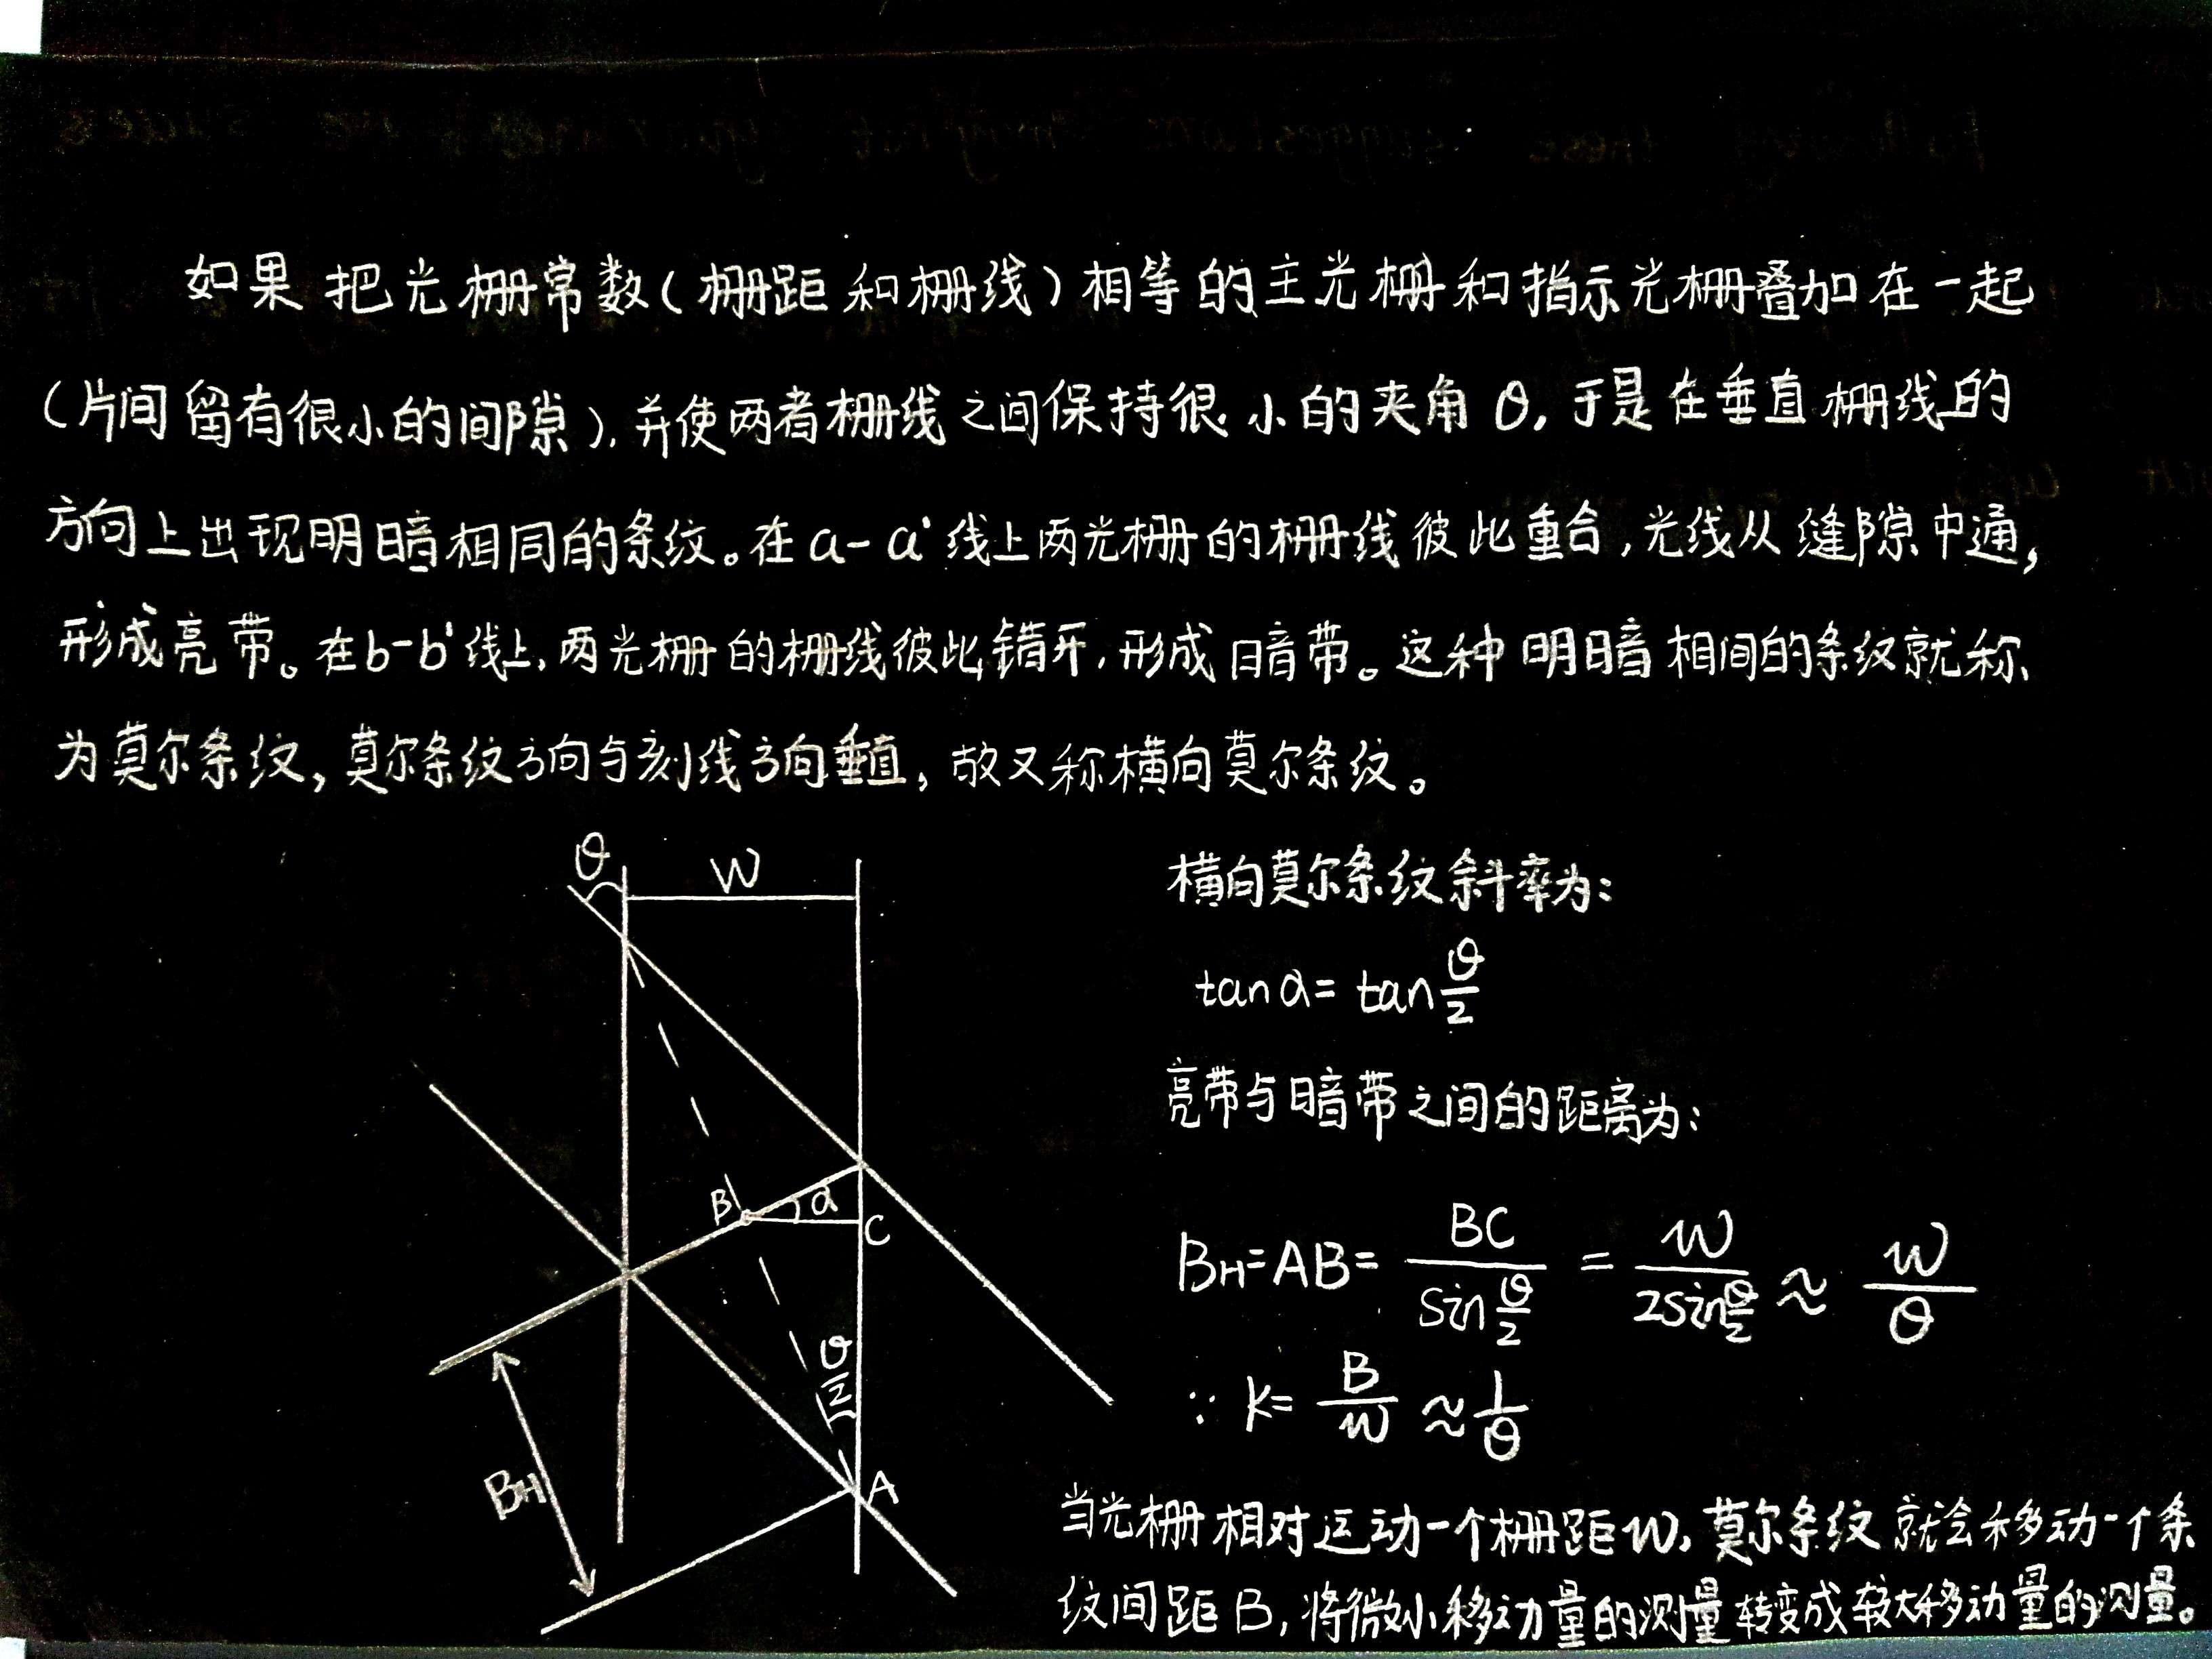 如果把光栅常数(栅距和栅线)相等的主光栅和指示光栅叠加在一起
(片间留有很小的间隙),并使两者栅线之间保持很小的夹角θ,于是在垂直栅线的
方向上出现明暗相同的条纹。在a-a'线上两光栅的栅线彼此重合,光线从缝隙中通,
形成亮带。在b-b'线上,两光栅的栅线彼此错开,形成暗带。这种明暗相间的条纹就称
为莫尔条纹,莫尔条纹方向与刻线方向垂直,故又称横向莫尔条纹。
θ
W
B
α
C
θ/2
A
BH
横向莫尔条纹斜率为:
tanα=tanθ/2
亮带与暗带之间的距离为:
BH=AB=BC/sinθ/2=W/2sinθ/2≈W/θ
∵K=B/W≈1/θ
当光栅相对运动一个栅距W,莫尔条纹就会移动一个条
纹间距B,将微小移动量的测量转变成较大移动量的测量。